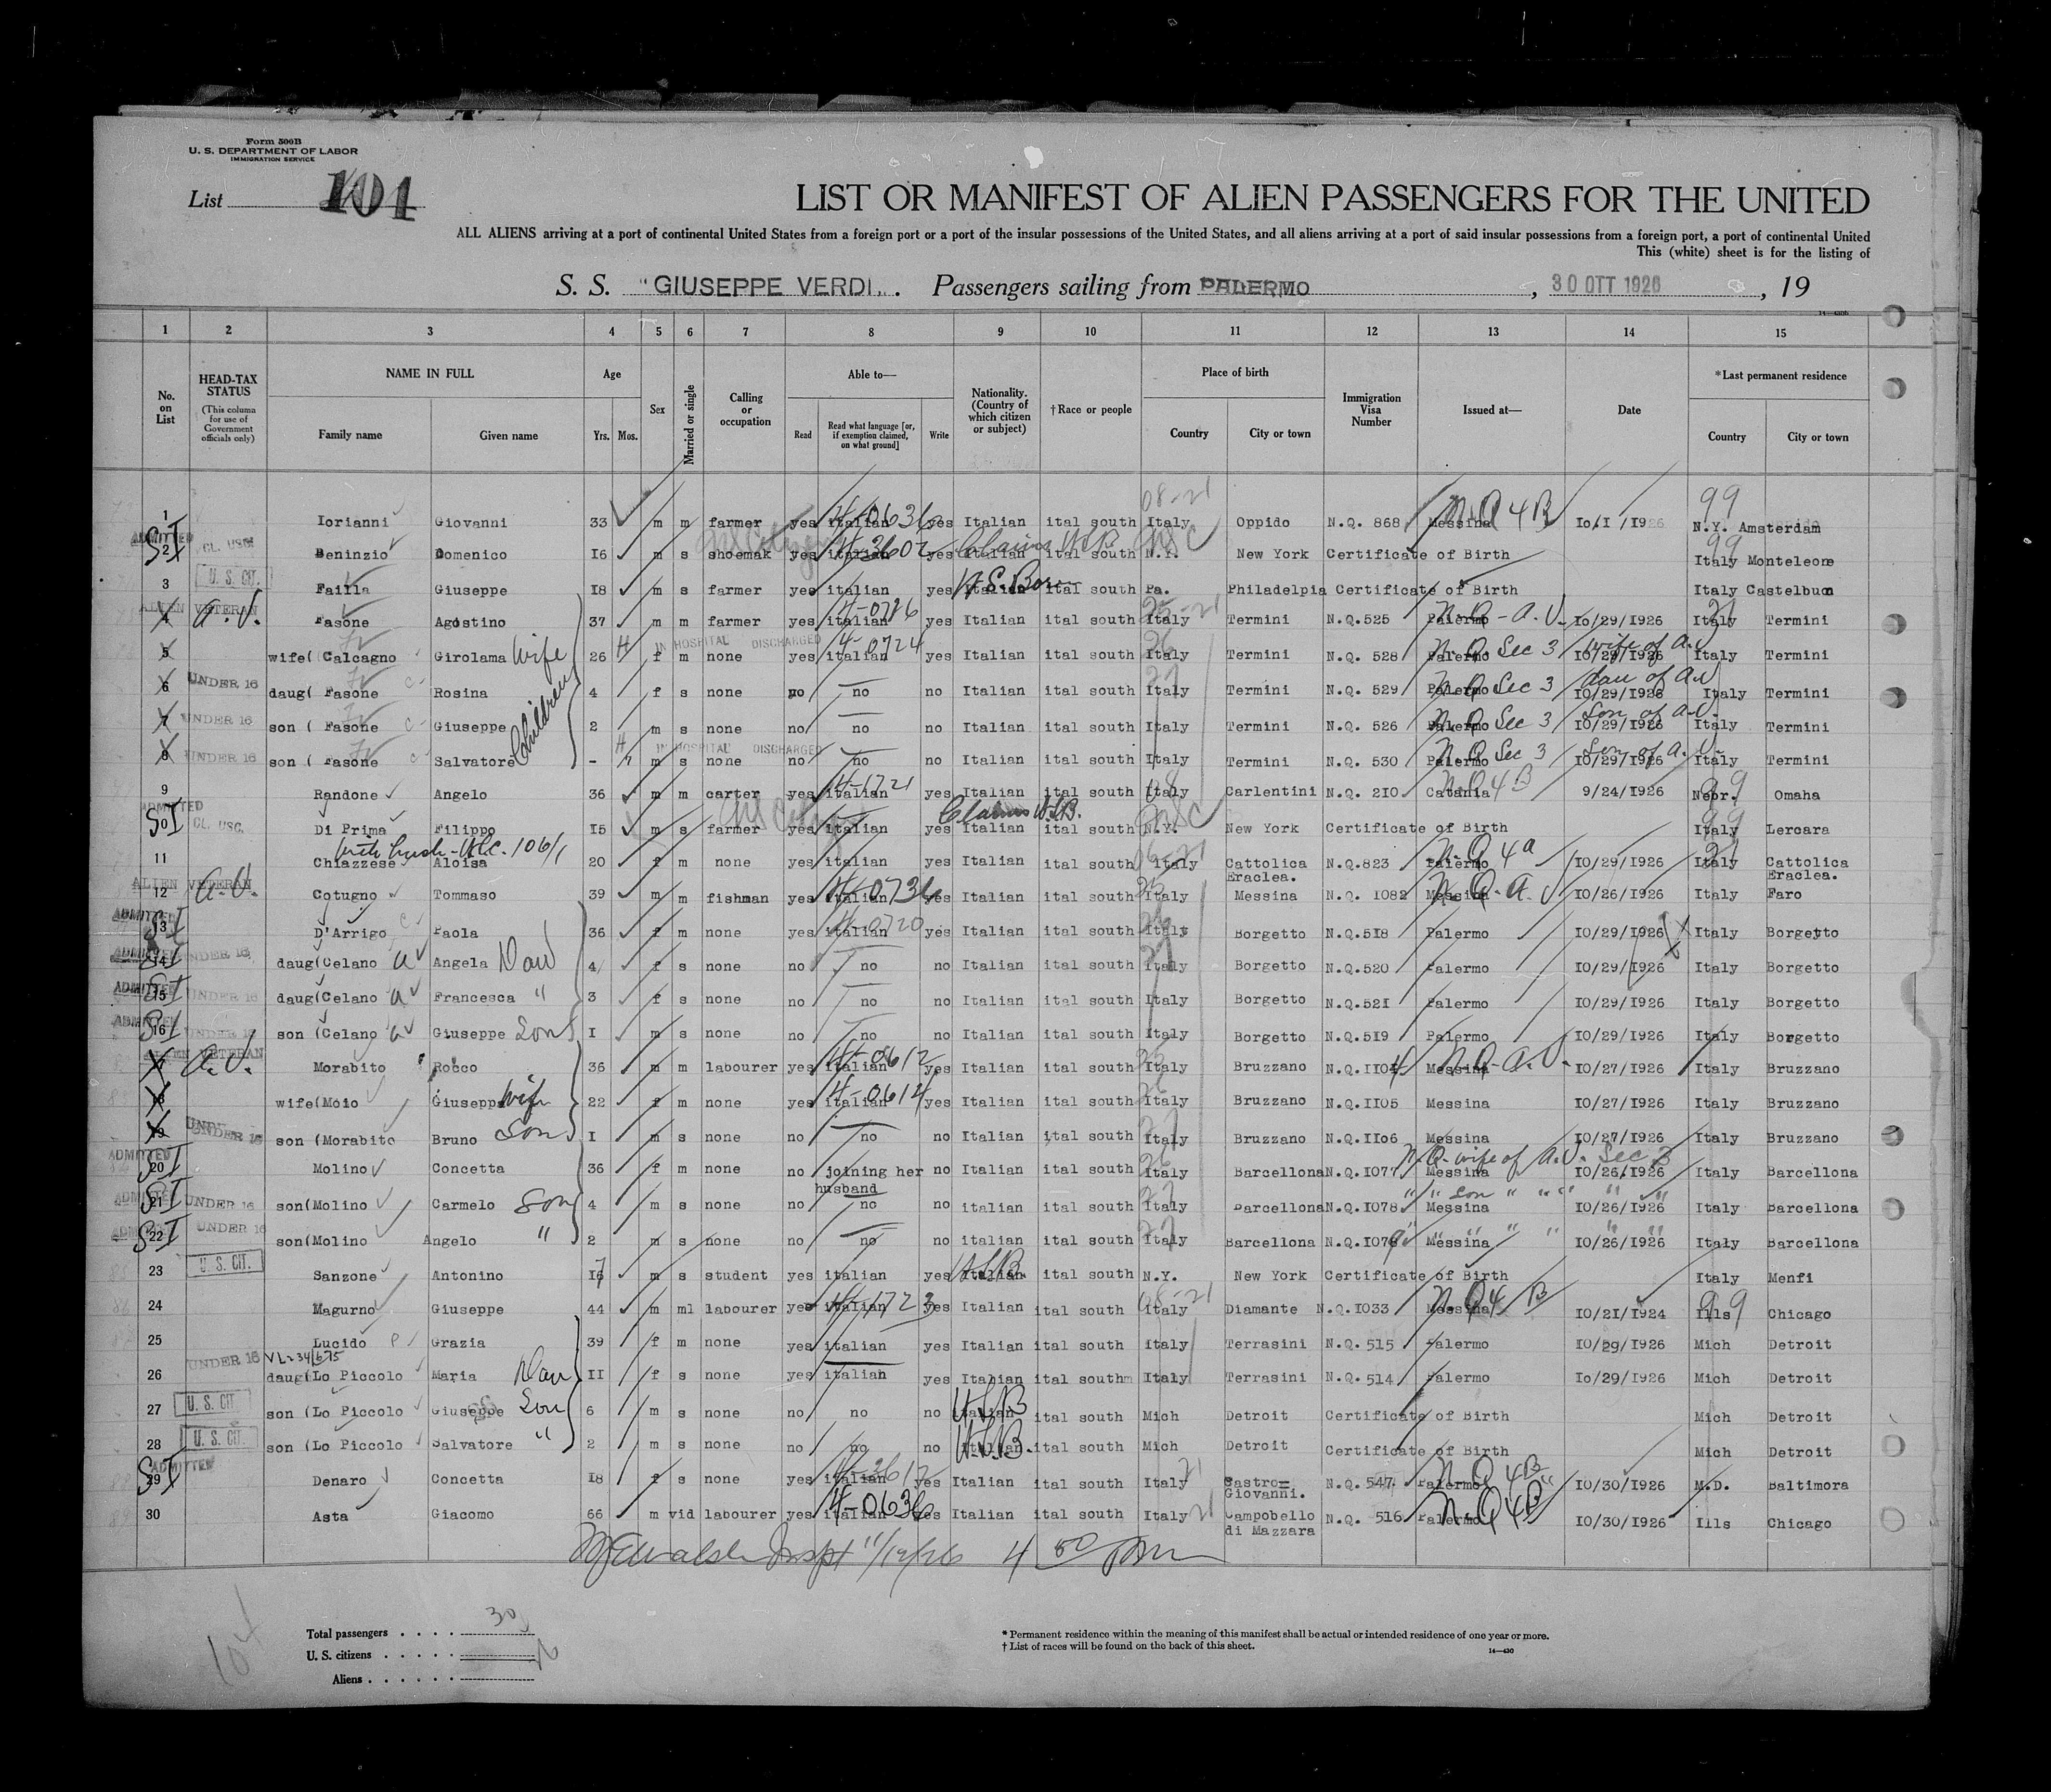 Form 500B
U. S. DEPARTMENT OF LABOR
IMMIGRATION SERVICE
List 101
LIST OR MANIFEST OF ALIEN PASSENGERS FOR THE UNITED
ALL ALIENS arriving at a port of continental United States from a foreign port or a port of the insular possessions of the United States, and all aliens arriving at a port of said insular possessions from a foreign port, a port of continental United
This (white) sheet is for the listing of
S. S. "GIUSEPPE VERDI". Passengers sailing from PALERMO, 30 OTT 1926, 19
1 2 3 4 5 6 7 8 9 10 11 12 13 14 15
No. on List HEAD-TAX STATUS (This column for use of Government officials only) NAME IN FULL Family name Given name Age Yrs. Mos. Sex Married or single Calling or occupation Able to— Read Read what language [or, if exemption claimed, on what ground] Write Nationality. (Country of which citizen or subject) †Race or people Place of birth Country City or town Immigration Visa Number Issued at— Date *Last permanent residence Country City or town
1 Iorianni Giovanni 33 m m farmer yes italian 4-0636 yes Italian ital south Italy 08-21 Oppido N.Q. 868 Messina N.Q 4B 10/1/1926 99 N.Y. Amsterdam
ADMITTED SI 2 CL. USC. Beninzio Domenico 16 m s shoemak yes italian yes Italian ital south N.Y. New York Certificate of Birth 99 Italy Monteleone
3 U. S. CIT. Failla Giuseppe 18 m s farmer yes italian yes Italian U.S. Born ital south Pa. Philadelpia Certificate of Birth Italy Castelbuon
4 ALIEN VETERAN A.V. Fasone Agostino 37 m m farmer yes italian 4-0786 yes Italian ital south Italy 25-21 Termini N.Q.525 Palermo N.Q-A.V. 10/29/1926 Italy Termini
5 wife( Calcagno Girolama Wife 26 H IN HOSPITAL DISCHARGED f m none yes italian 4-0724 yes Italian ital south Italy 26 Termini N.Q. 528 Palermo N.Q. Sec 3 10/29/1926 wife of A.V. Italy Termini
6 UNDER 16 daug( Fasone Rosina Children 4 f s none no no no Italian ital south Italy 27 Termini N.Q. 529 Palermo N.Q Sec 3 10/29/1926 dau of A.V Italy Termini
7 UNDER 16 son ( Fasone Giuseppe 2 m s none no no no Italian ital south Italy Termini N.Q. 526 Palermo N.Q Sec 3 10/29/1926 Son of A.V. Italy Termini
8 UNDER 16 son ( Fasone Salvatore - H IN HOSPITAL DISCHARGED m s none no no no Italian ital south Italy Termini N.Q. 530 Palermo N.Q Sec 3 10/29/1926 Son of A.V. Italy Termini
9 Randone Angelo 36 m m carter yes italian 4-1721 yes Italian ital south Italy Carlentini N.Q. 210 Catania N.Q 4B 9/24/1926 Nebr. 99 Omaha
ADMITTED SI 10 CL. USC. Di Prima Filippo 15 m s farmer yes italian yes Italian Claims U.S.B. ital south N.Y. New York Certificate of Birth 99 Italy Lercara
11 Chiazzese Aloisa 20 f m none yes italian yes Italian ital south Italy Cattolica Eraclea. N.Q.823 Palermo N.Q 4a 10/29/1926 Italy Cattolica Eraclea.
12 ALIEN VETERAN A.V. Cotugno Tommaso 39 m m fishman yes italian 4-0736 yes Italian ital south Italy 25 Messina N.Q. 1082 Messina N.Q-A.V. 10/26/1926 Italy Faro
ADMITTED SI 13 D'Arrigo Paola 36 f m none yes italian 4-0720 yes Italian ital south Italy 26 Borgetto N.Q.518 Palermo 10/29/1926 Italy Borgetto
ADMITTED SI 14 UNDER 16 daug(Celano Angela Dau 4 f s none no no no Italian ital south Italy 27 Borgetto N.Q.520 Palermo 10/29/1926 Italy Borgetto
ADMITTED SI 15 UNDER 16 daug(Celano Francesca " 3 f s none no no no Italian ital south Italy Borgetto N.Q.521 Palermo 10/29/1926 Italy Borgetto
ADMITTED SI 16 UNDER 16 son (Celano Giuseppe Son 1 m s none no no no Italian ital south Italy Borgetto N.Q.519 Palermo 10/29/1926 Italy Borgetto
17 ALIEN VETERAN A.V. Morabito Rocco 36 m m labourer yes italian 4-0612 yes Italian ital south Italy 25 Bruzzano N.Q.1104 Messina N.Q-A.V. 10/27/1926 Italy Bruzzano
18 wife(Moio Giuseppe Wife 22 f m none yes italian 4-0614 yes Italian ital south Italy 26 Bruzzano N.Q.1105 Messina 10/27/1926 Italy Bruzzano
19 UNDER 16 son (Morabito Bruno Son 1 m s none no no no Italian ital south Italy 27 Bruzzano N.Q.1106 Messina 10/27/1926 Italy Bruzzano
ADMITTED SI 20 Molino Concetta 36 f m none no joining her husband no Italian ital south Italy 26 Barcellona N.Q.1077 Messina N.Q-wife of A.V. Sec 3 10/26/1926 Italy Barcellona
ADMITTED SI 21 UNDER 16 son(Molino Carmelo Son 4 m s none no no no italian ital south Italy 27 Barcellona N.Q.1078 Messina " " Son " " " " " 10/26/1926 Italy Barcellona
ADMITTED SI 22 UNDER 16 son(Molino Angelo " 2 m s none no no no italian ital south Italy 27 Barcellona N.Q.1079 Messina " " " " " " 10/26/1926 Italy Barcellona
23 U. S. CIT. Sanzone Antonino 16 7 m s student yes italian yes Italian U.S.B. ital south N.Y. New York Certificate of Birth Italy Menfi
24 Magurno Giuseppe 44 m ml labourer yes italian 4-1723 yes Italian ital south Italy 08-21 Diamante N.Q.1033 Messina N.Q 4 B 10/21/1924 Ills 99 Chicago
25 Lucido Grazia 39 f m none yes italian yes Italian ital south Italy Terrasini N.Q. 515 Palermo 10/29/1926 Mich Detroit
26 UNDER 16 VL-34/675 daug(Lo Piccolo Maria Dau 11 f s none yes italian yes Italian ital south Italy Terrasini N.Q. 514 Palermo 10/29/1926 Mich Detroit
27 U. S. CIT. son (Lo Piccolo Giuseppe Son 6 m s none no no no Italian U.S.B ital south Mich Detroit Certificate of Birth Mich Detroit
28 U. S. CIT. son (Lo Piccolo Salvatore " 2 m s none no no no Italian. U.S.B. ital south Mich Detroit Certificate of Birth Mich Detroit
ADMITTED SI 29 Denaro Concetta 18 f s none yes italian yes Italian ital south Italy 21 Castro= Giovanni. N.Q. 547 Palermo N.Q 4B 10/30/1926 M.D. Baltimora
30 Asta Giacomo 66 m vid labourer yes italian 4-0636 yes Italian ital south Italy 21 Campobello di Mazzara N.Q. 516 Palermo N.Q 4B 10/30/1926 Ills Chicago
Inspt 11/12/26 4 50 pm
Total passengers . . . . 30
U. S. citizens . . . . .
Aliens . . . . .
* Permanent residence within the meaning of this manifest shall be actual or intended residence of one year or more.
† List of races will be found on the back of this sheet.
14—430